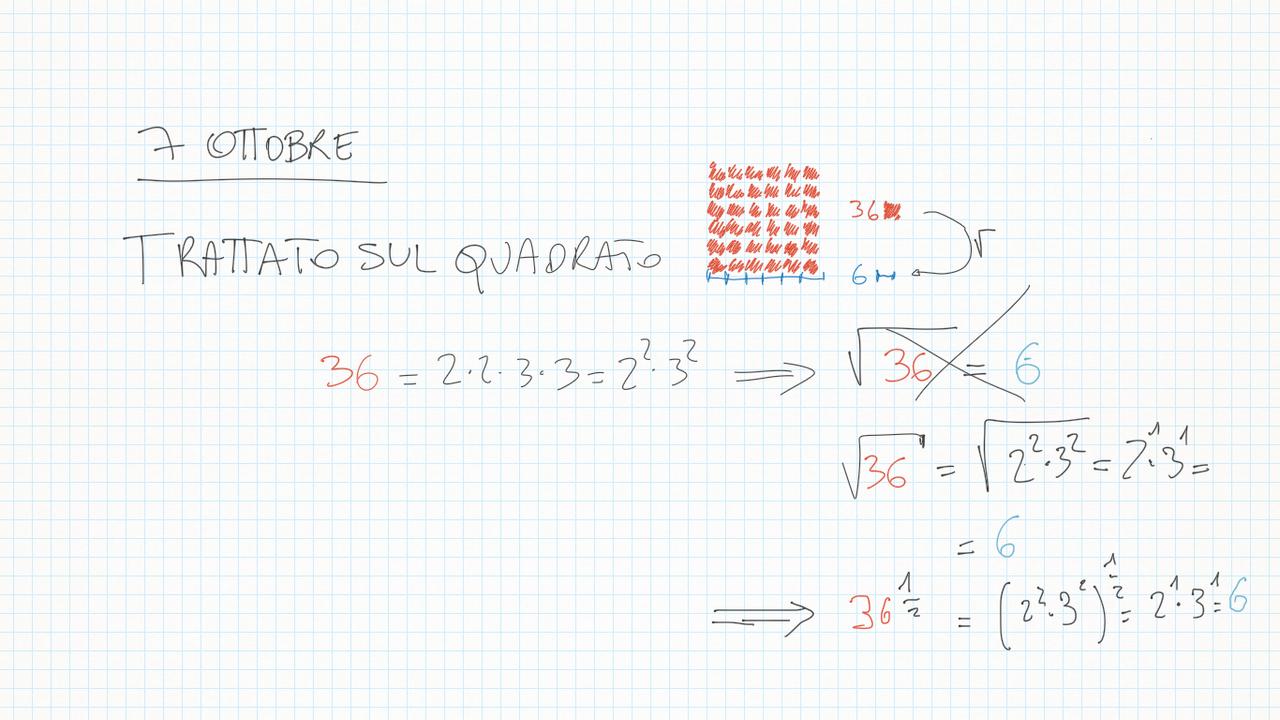 7 OTTOBRE
TRATTATO SUL QUADRATO
36
√
6
36 = 2·2·3·3 = 2²·3² ⟹ √36 = 6
√36 = √2²·3² = 2¹·3¹ =
= 6
⟹ 36^1/2 = (2²·3²)^1/2 = 2¹·3¹ = 6